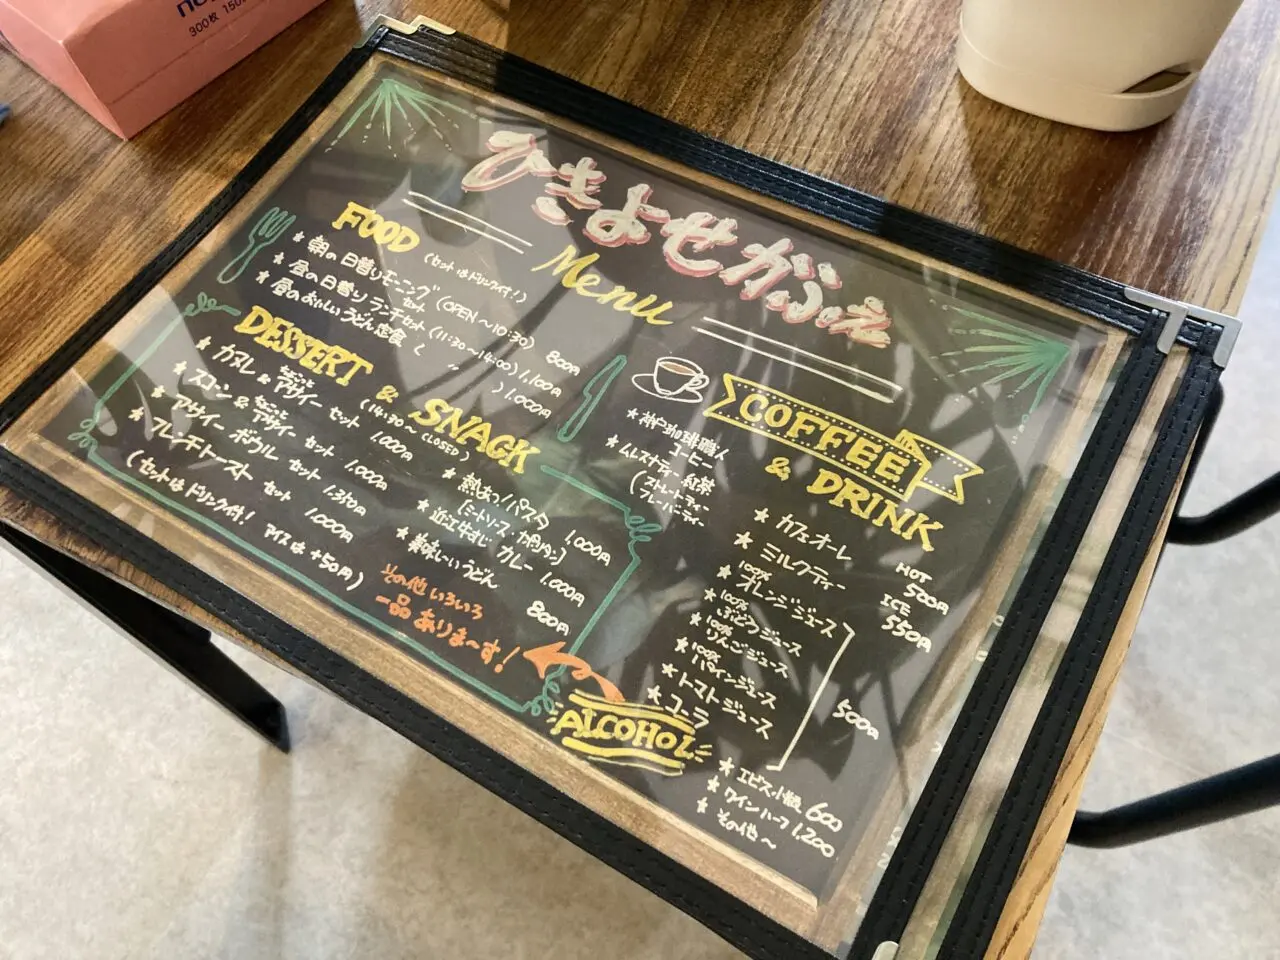 300枚 150
ひきよせかふぇ
Menu
FOOD
(セットはドリンク付!)
★ 朝の日替りモーニングセット (OPEN〜10:30) 800円
★ 昼の日替りランチセット (11:30〜14:00) 1,100円
★ 昼のおいしいうどん定食 ( 〃 ) 1,000円
DESSERT & SNACK
(14:30〜CLOSED)
★ カヌレ & ちょこっとアサイー セット 1,000円
★ スコーン & ちょこっとアサイー セット 1,000円
★ アサイー ボウル セット 1,350円
★ フレンチトースト セット 1,000円
(セットはドリンク付! アイスは+50円)
★ 熱あつパスタ 1,000円
(ミートソース・カルボナーラ)
★ 近江牛すじ カレー 1,000円
★ 美味しいうどん 800円
その他いろいろ
一品あります!
COFFEE
& DRINK
★ 神戸珈琲職人
コーヒー
★ ムレスナティー 紅茶
(ストレートティー
フレーバーティー
★ カフェオーレ
★ ミルクティー
HOT
500円
ICE
550円
★ 100% オレンジジュース
★ 100% ぶどうジュース
★ 100% りんごジュース
★ 100% パインジュース
★ トマトジュース
★ コーラ
500円
ALCOHOL
★ エビス小瓶 600
★ ワインハーフ 1,200
★ その他〜